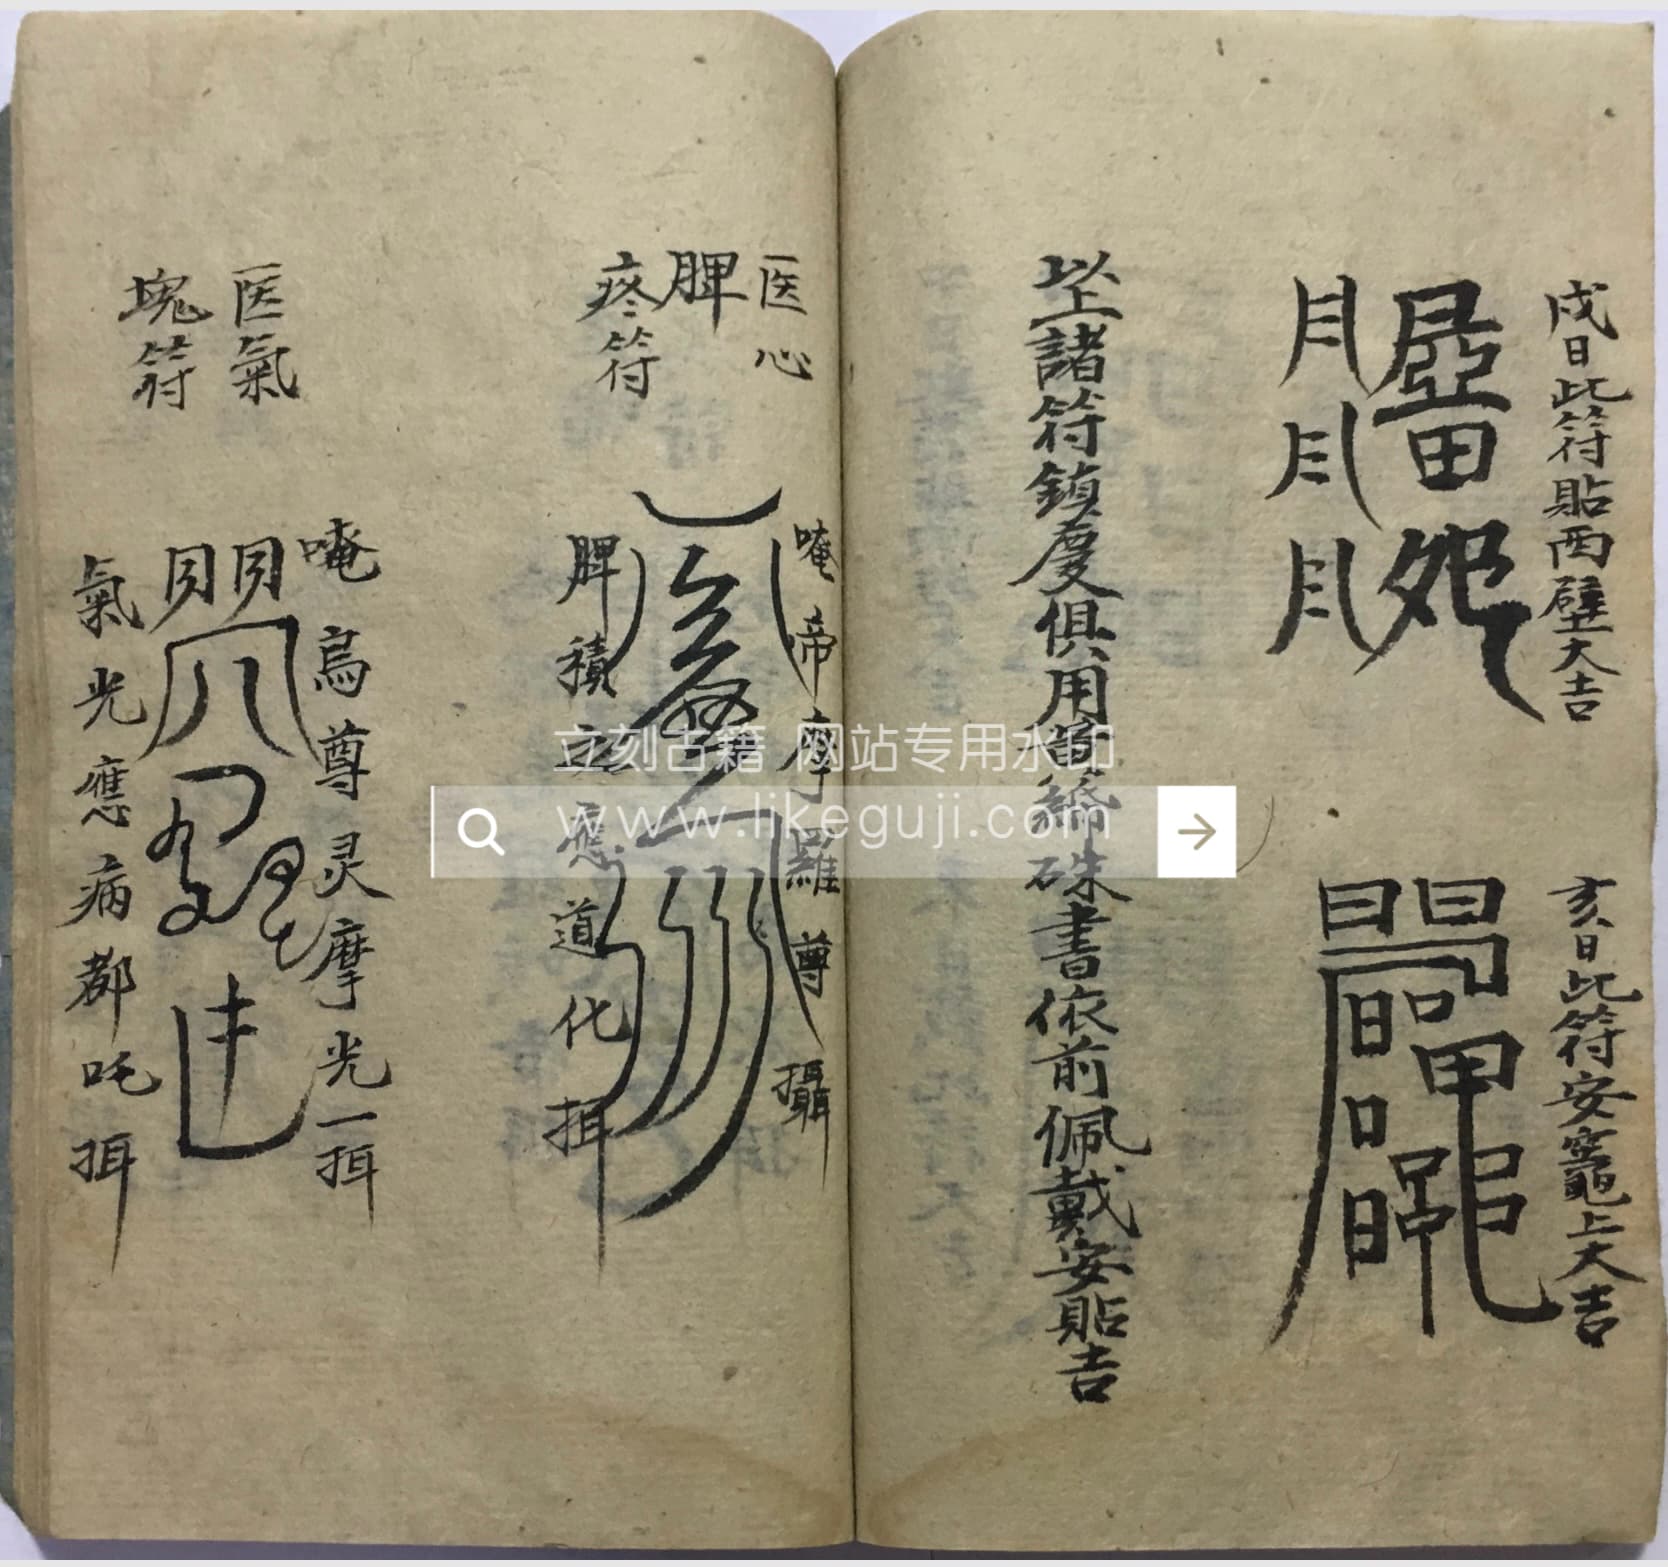 戌日此符貼西壁大吉
亥日此符安竈上大吉
以上諸符鎮處俱用黃紙硃書依前佩戴安貼吉
医心
脾
疼符
唵帝摩羅尊攝
脾積立應道化
医氣
塊符
唵烏尊灵摩光一
氣光應病都吒
立刻古籍 网站专用水印
www.likeguji.com